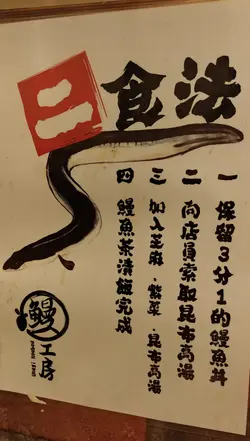 二食法
一 保留3分1的鰻魚丼
二 向店員索取昆布高湯
三 加入芝麻·紫菜·昆布高湯
四 鰻魚茶漬飯完成
鰻工房